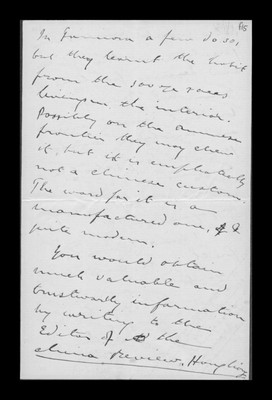 In Formosa a few do so,
but they learnt the habit
from the savage races
living in the interior.
Possibly on the Annamese
frontier they may chew
it, but it is emphatically
not a Chinese custom.
The word for it is a
manufactured one, &
quite modern.
You would obtain
much valuable and
trustworthy information
by writing to the
Editor of the
China Review, Hongkong